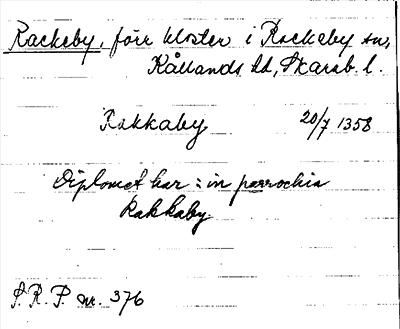 Rackeby, förr kloster i Rackeby sn,
Kållands hd, Skarab. l.
Rakkaby 20/7 1358
Diplomet har : in parrochia
Rakkaby.
S. R. P. nr. 376